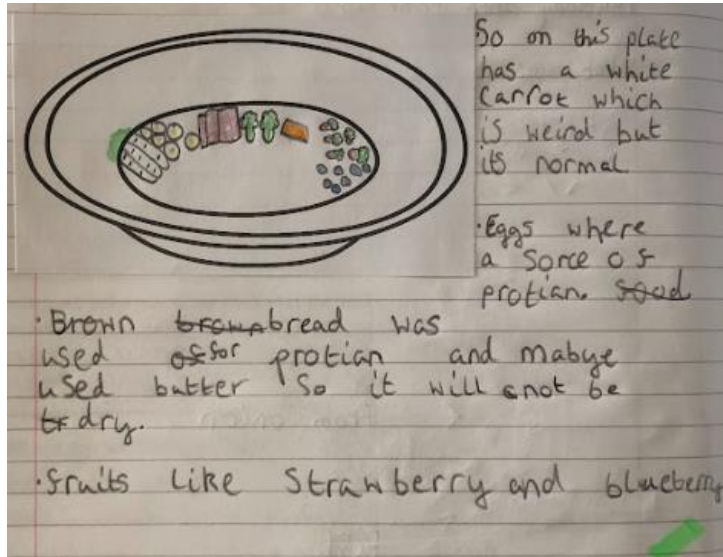 So on this plate
has a white
Carrot which
is weird but
its normal.
· Eggs where
a sorce of
protian. food
· Brown brown bread was
used of for protian and mabye
used butter so it will cnot be
tr dry.
· fruits like strawberry and blueberry